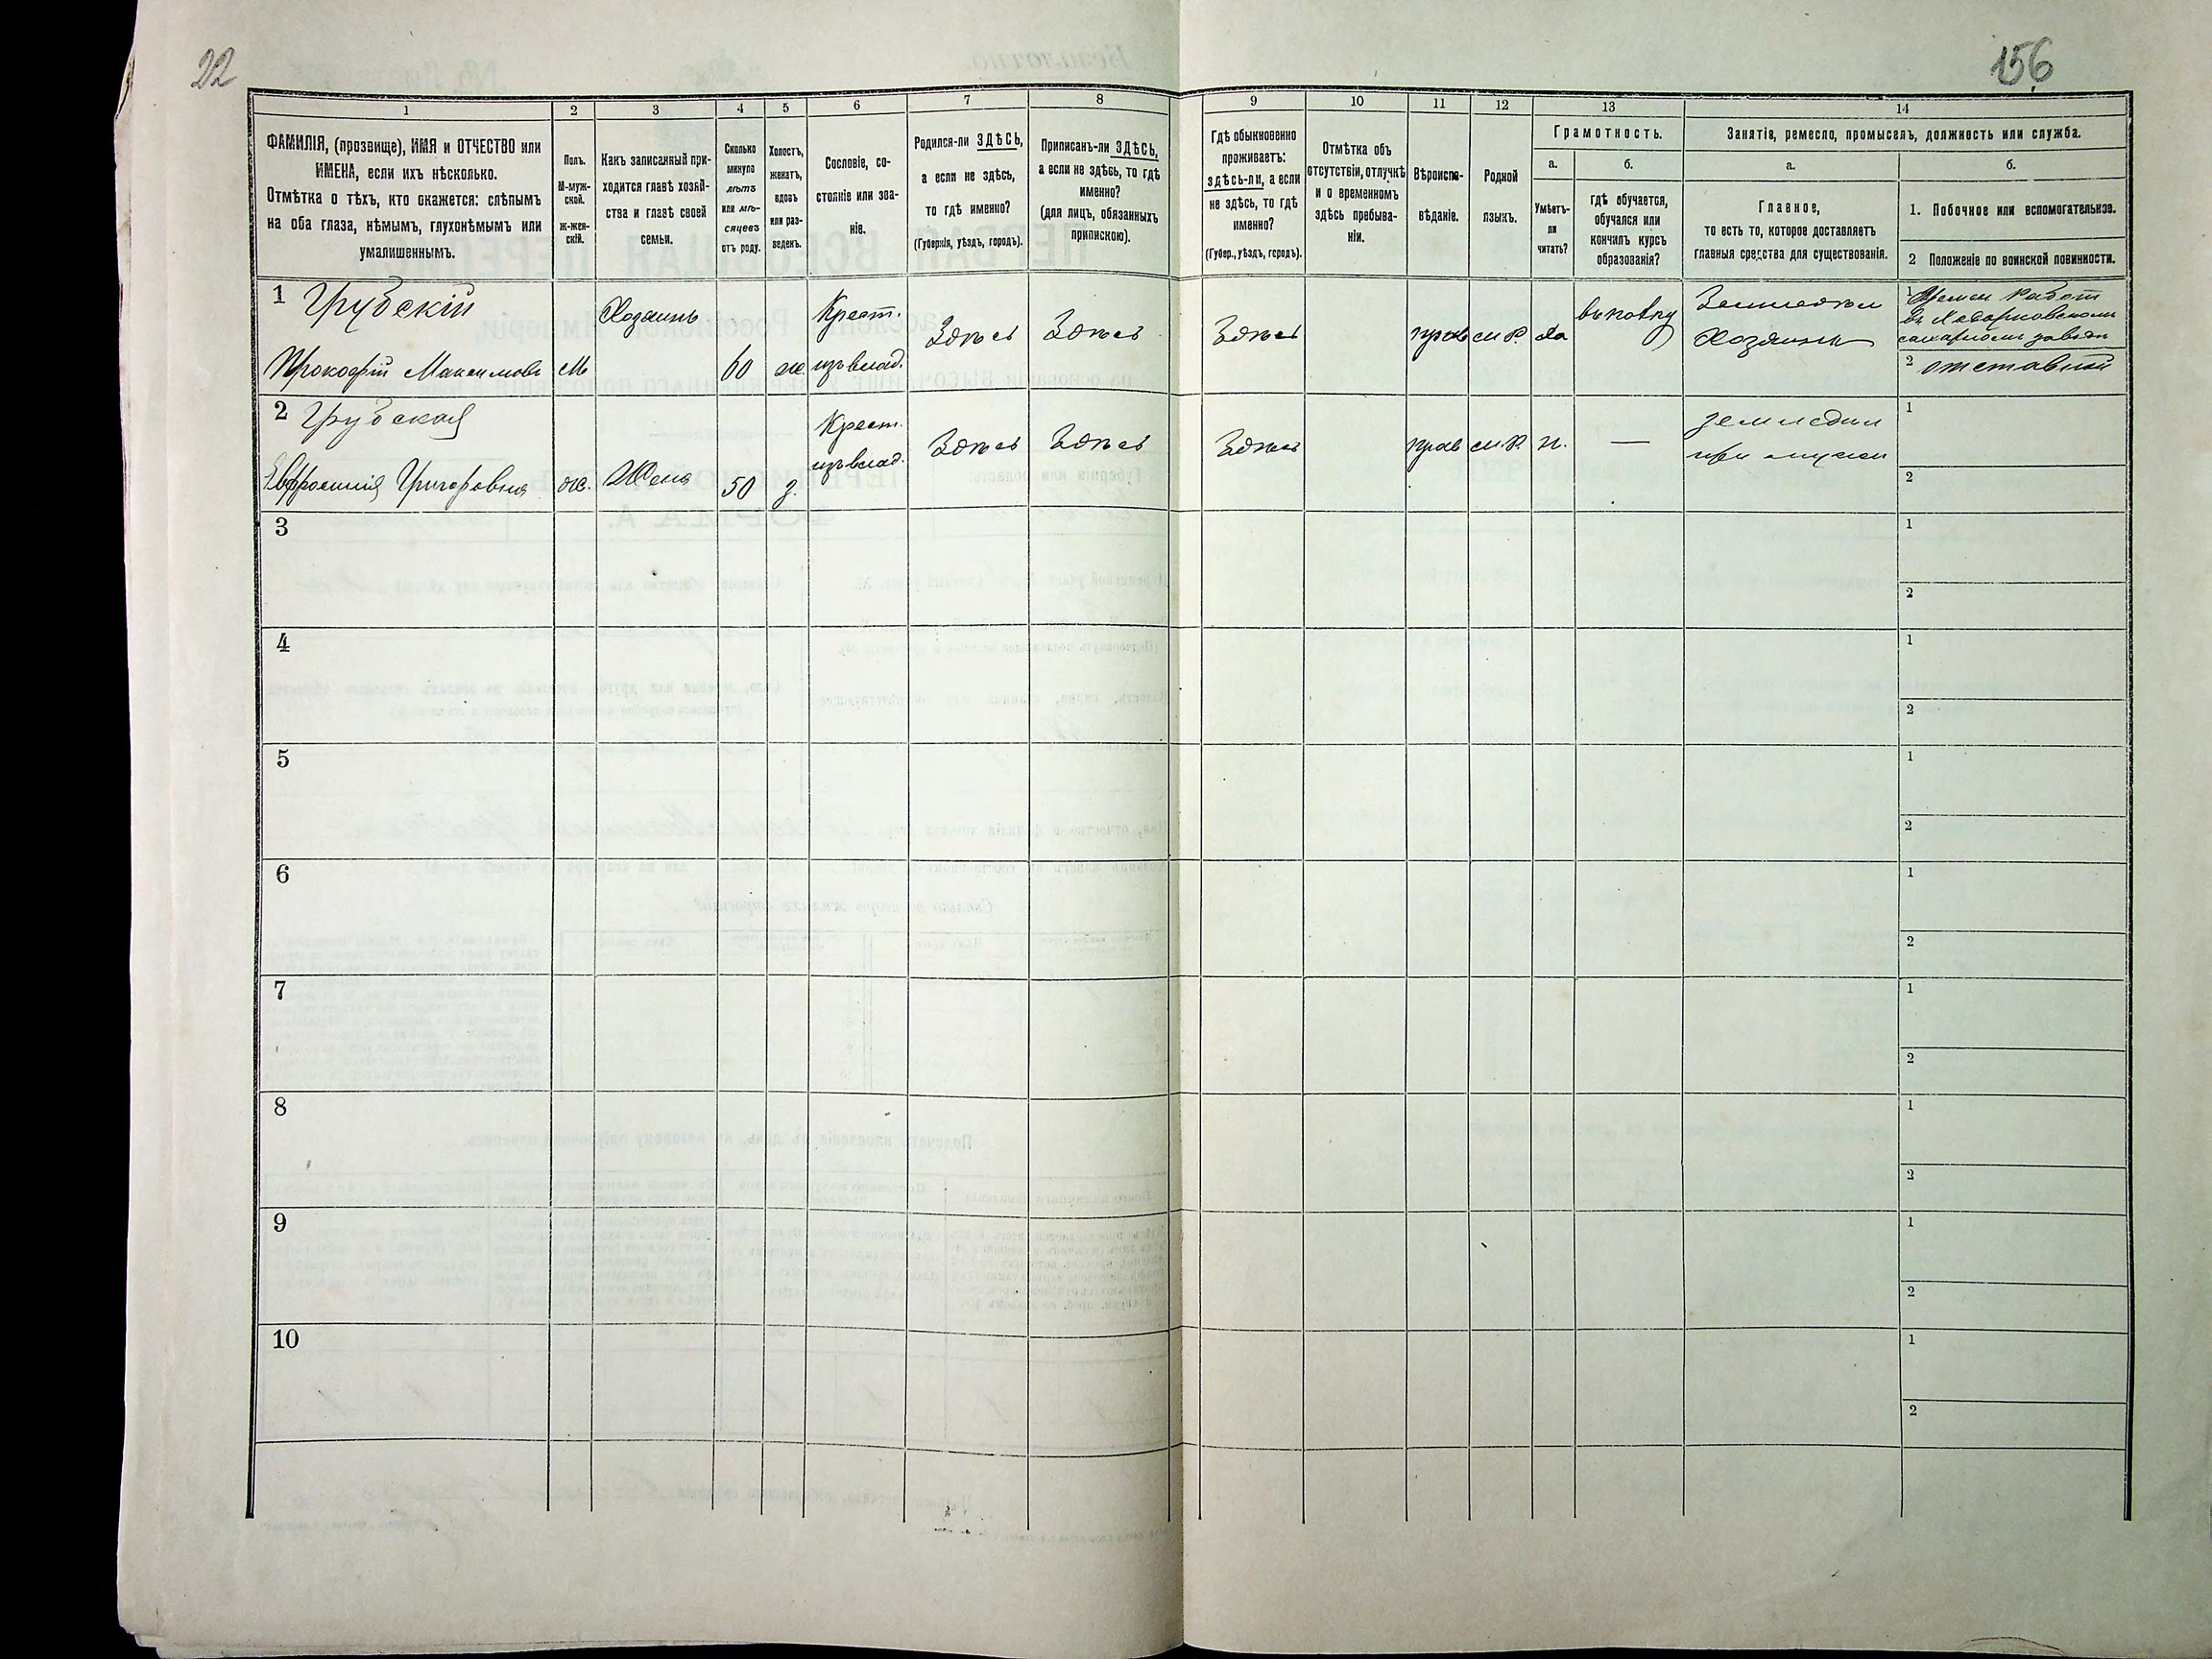 22
156
1
2
3
4
5
6
7
8
9
10
11
12
13
14
ФАМИЛІЯ, (прозвище), ИМЯ и ОТЧЕСТВО или
ИМЕНА, если ихъ нѣсколько.
Отмѣтка о тѣхъ, кто окажется: слѣпымъ
на оба глаза, нѣмымъ, глухонѣмымъ или
умалишеннымъ.
Полъ.
М-муж-
ской.
ж-жен-
скій.
Какъ записанный при-
ходится главѣ хозяй-
ства и главѣ своей
семьи.
Сколько
минуло
лѣтъ
или мѣ-
сяцевъ
отъ роду.
Холостъ,
женатъ,
вдовъ
или раз-
веденъ.
Сословіе, со-
стояніе или зва-
ніе.
Родился-ли ЗДѢСЬ,
а если не здѣсь,
то гдѣ именно?
(Губернія, уѣздъ, городъ).
Приписанъ-ли ЗДѢСЬ,
а если не здѣсь, то гдѣ
именно?
(для лицъ, обязанныхъ
припискою).
Гдѣ обыкновенно
проживаетъ:
здѣсь-ли, а если
не здѣсь, то гдѣ
именно?
(Губер., уѣздъ, городъ).
Отмѣтка объ
отсутствіи, отлучкѣ
и о временномъ
здѣсь пребыва-
ніи.
Вѣроиспо-
вѣданіе.
Родной
языкъ.
Грамотность.
а.
Умѣетъ-
ли
читать?
б.
гдѣ обучается,
обучался или
кончилъ курсъ
образованія?
Занятія, ремесло, промыселъ, должность или служба.
а.
Главное,
то есть то, которое доставляетъ
главныя средства для существованія.
б.
1. Побочное или вспомогательное.
2 Положеніе по воинской повинности.
1 Грубскій
Прокофій Максимовъ
М
Хозяинъ
60
ж.
Крест.
изъ влад.
Здѣсь
Здѣсь
Здѣсь
прав
м.р.
да
Хозяинъ
1
Работ
въ Ходорковскомъ
сахарномъ заводѣ
2 отставной
2 Грубская
Евфросинія Григоровна
ж.
Жена
50
з.
Крест.
изъ влад.
Здѣсь
Здѣсь
Здѣсь
прав
м.р.
н.
—
земледѣл
при мужѣ
1
2
3
1
2
4
1
2
5
1
2
6
1
2
7
1
2
8
1
2
9
1
2
10
1
2